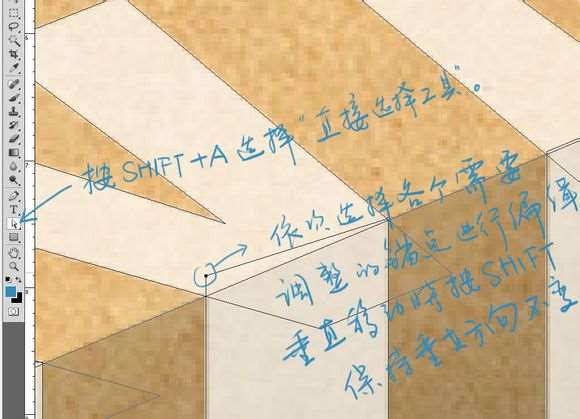 按SHIFT+A选择"直接选择工具"。
依次选择各个需要
调整的锚点进行编辑
垂直移动时按SHIFT
保持垂直方向不变